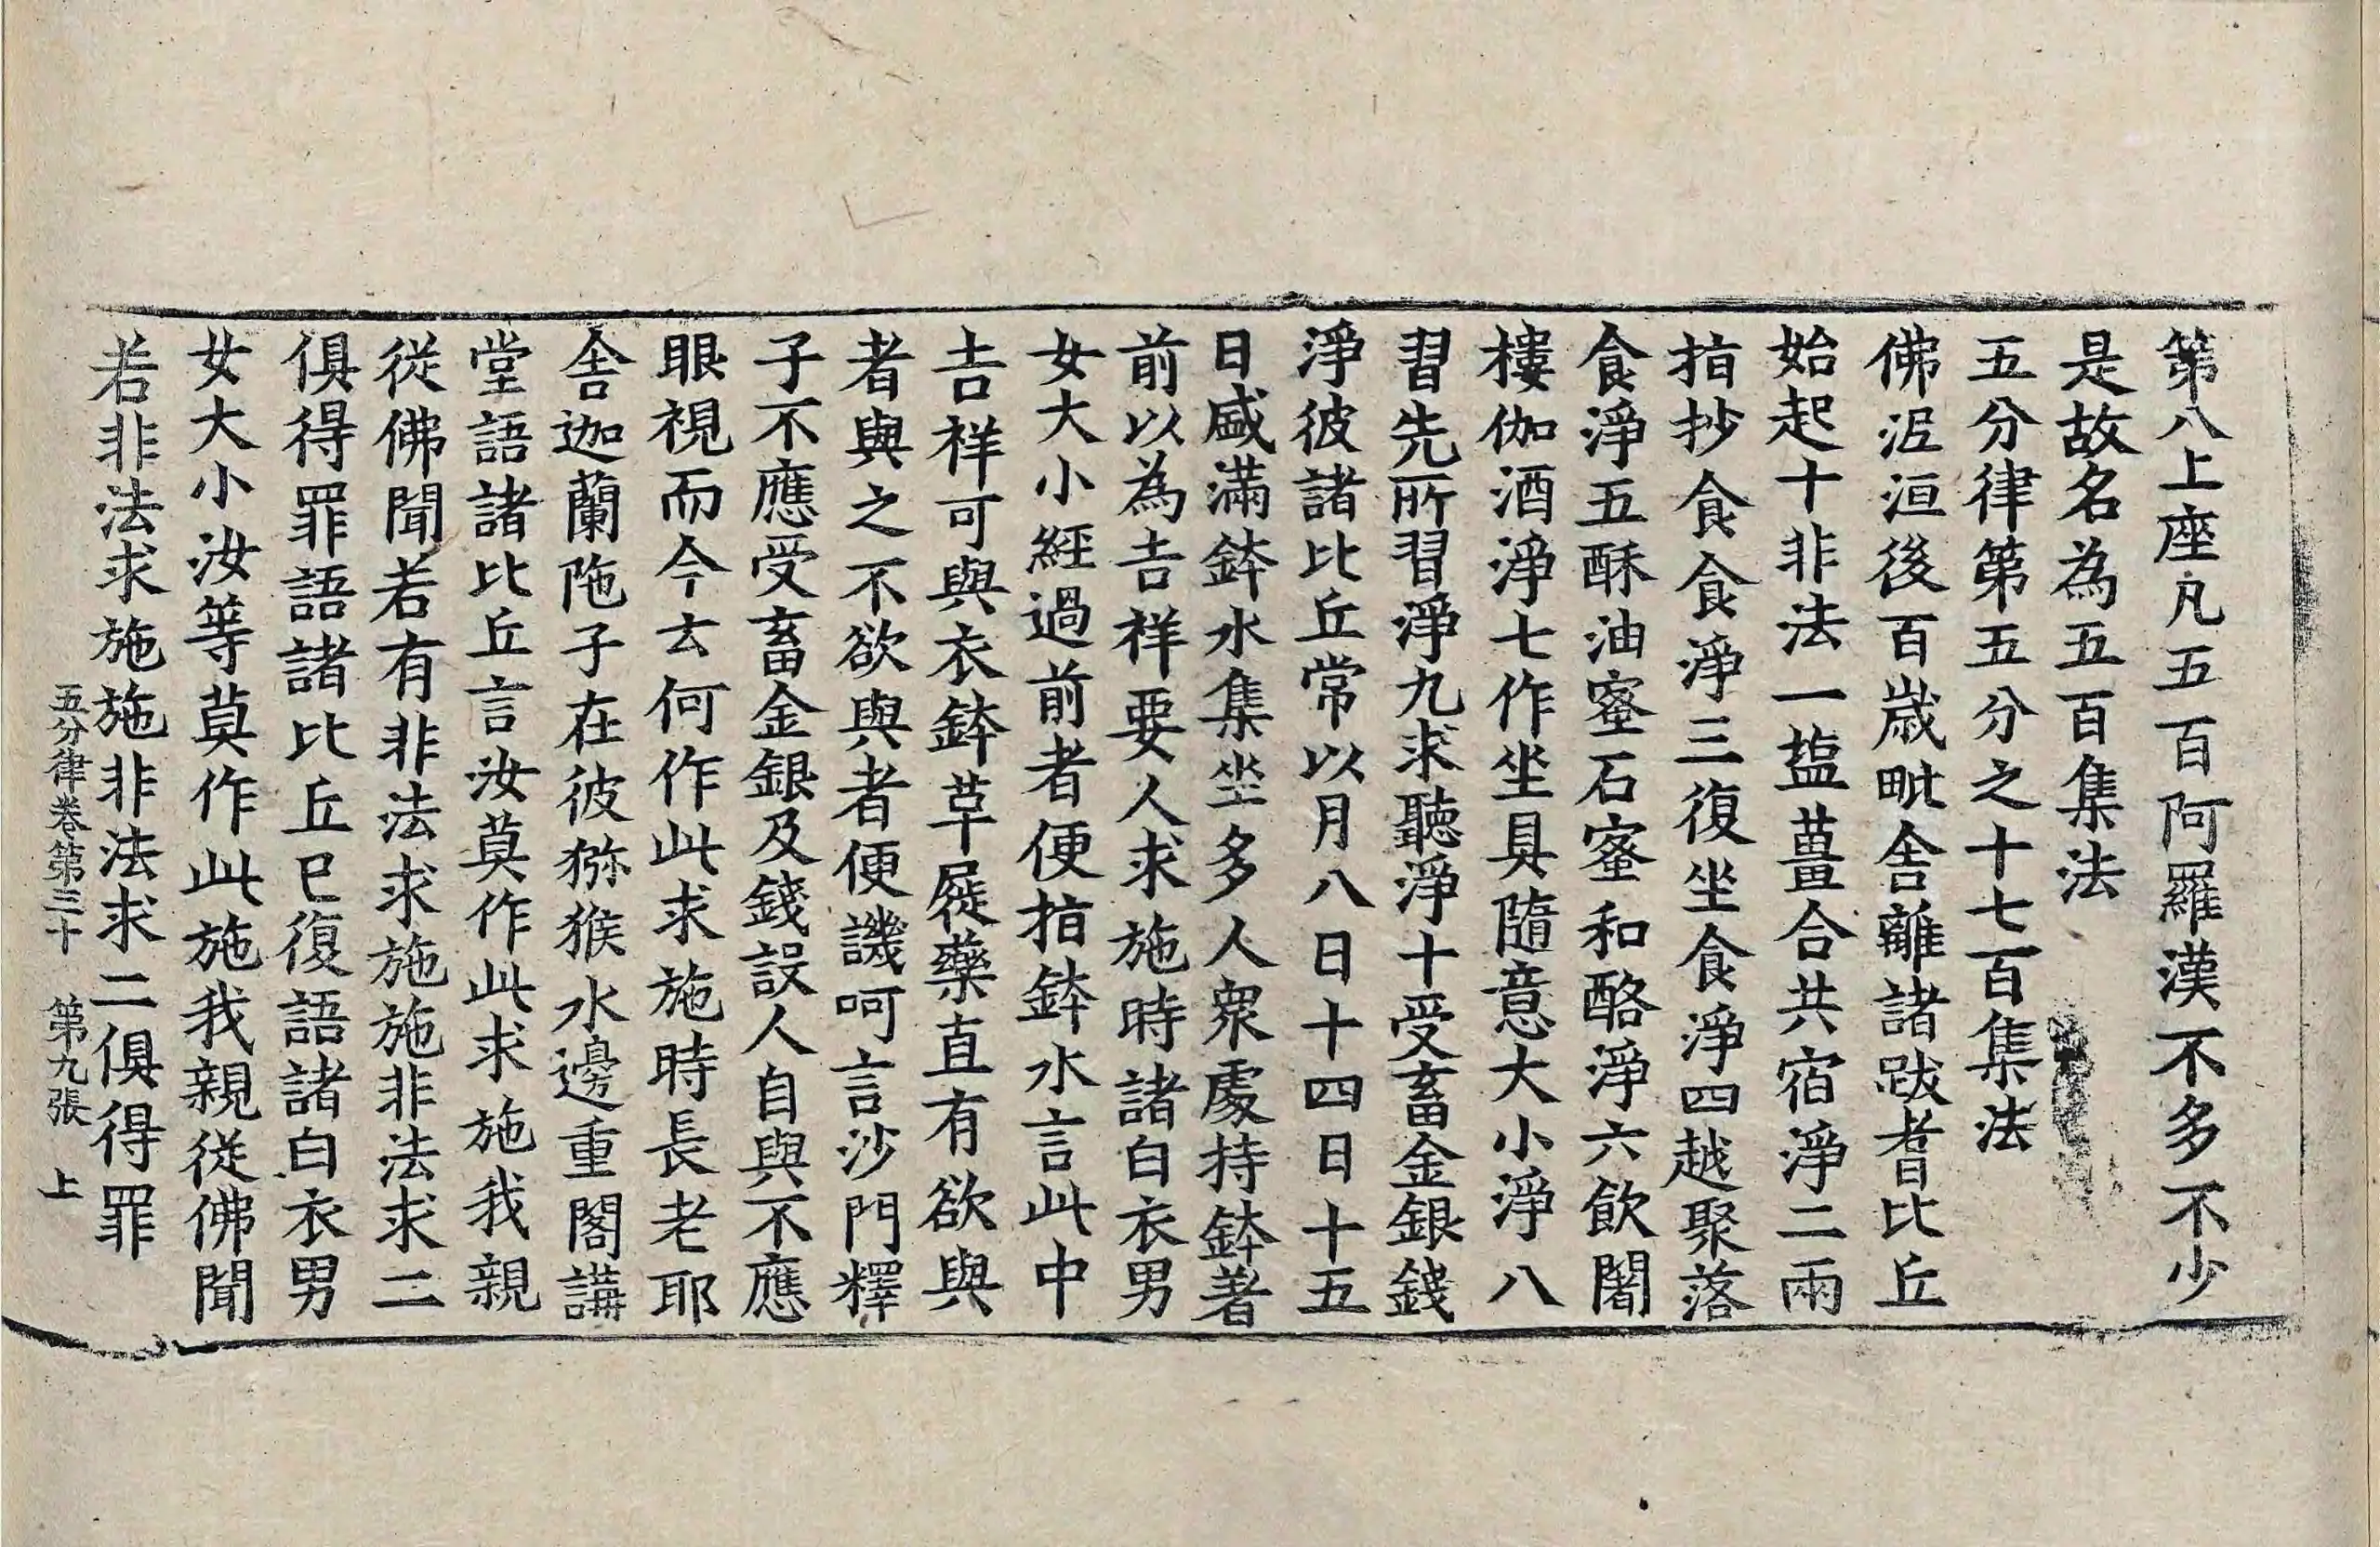 第八上座凡五百阿羅漢不多不少
是故名為五百集法
五分律第五分之十七百集法
佛泥洹後百歲毗舍離諸跋耆比丘
始起十非法一塩薑合共宿淨二兩
指抄食食淨三復坐食淨四越聚落
食淨五酥油蜜石蜜和酪淨六飲闍
樓伽酒淨七作坐具隨意大小淨八
習先所習淨九求聽淨十受畜金銀錢
淨彼諸比丘常以月八日十四日十五
日盛滿鉢水集坐多人衆處持鉢著
前以為吉祥要人求施時諸白衣男
女大小經過前者便指鉢水言此中
吉祥可與衣鉢草屣藥直有欲與
者與之不欲與者便譏呵言沙門釋
子不應受畜金銀及錢設人自與不應
眼視而今云何作此求施時長老耶
舍迦蘭陁子在彼獼猴水邊重閣講
堂語諸比丘言汝莫作此求施我親
從佛聞若有非法求施施非法求二
俱得罪語諸比丘已復語諸白衣男
女大小汝等莫作此施我親從佛聞
若非法求施施非法求二俱得罪
五分律卷第三十 第九張 上